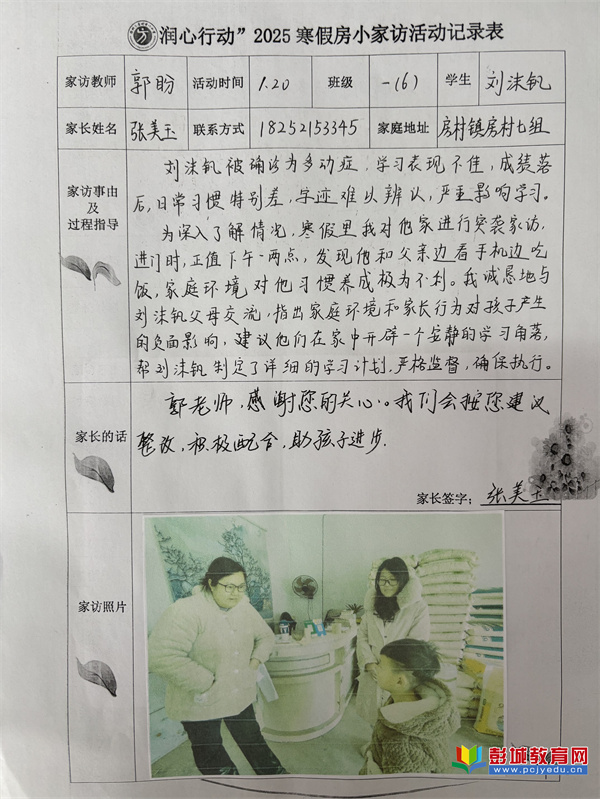 润心行动”2025寒假房小家访活动记录表
家访教师 郭盼 活动时间 1.20 班级 一(6) 学生 刘沫钒
家长姓名 张美玉 联系方式 18252153345 家庭地址 房村镇房村七组
家访事由
及
过程指导
刘沫钒被确诊为多动症，学习表现不佳，成绩落
后，日常习惯特别差，字迹难以辨认，严重影响学习。
为深入了解情况，寒假里我对他家进行突袭家访，
进门时，正值下午一两点，发现他和父亲边看手机边吃
饭，家庭环境对他习惯养成极为不利。我诚恳地与
刘沫钒父母交流，指出家庭环境和家长行为对孩子产生
的负面影响，建议他们在家中开辟一个安静的学习角落，
帮刘沫钒制定了详细的学习计划，严格监督，确保执行。
家长的话
郭老师，感谢您的关心。我们会按您建议
整改，积极配合，助孩子进步.
家长签字：张美玉
家访照片
彭城教育网
www.pcjyedu.cn